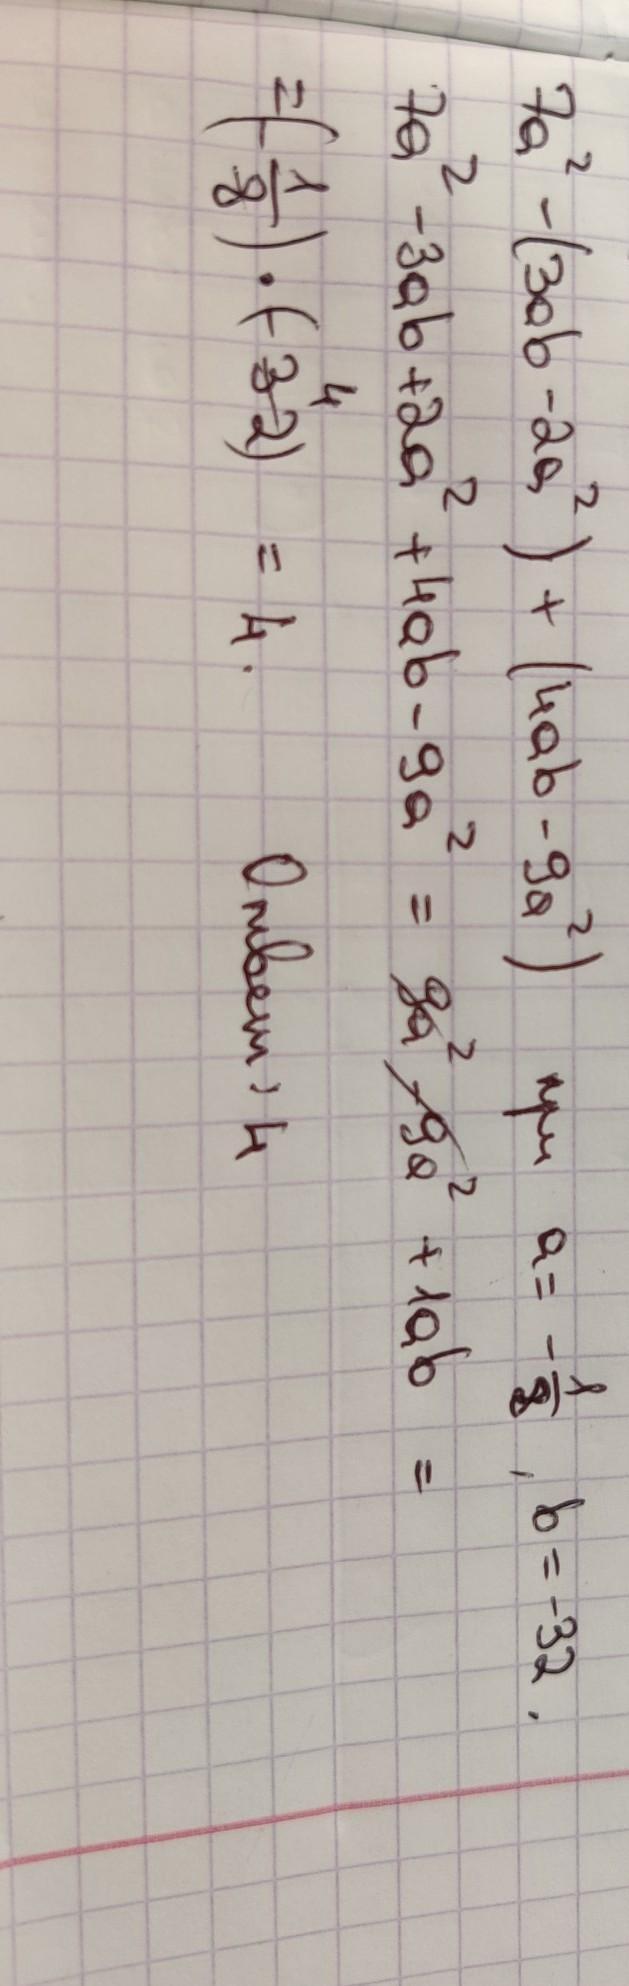 7a² - (3ab - 2a²) + (4ab - 9a²) при a = -1/8, b = -32.
7a² - 3ab + 2a² + 4ab - 9a² = 9a² - 9a² + 1ab =
= (-1/8) · (-32) ⁴ = 4. Ответ: 4